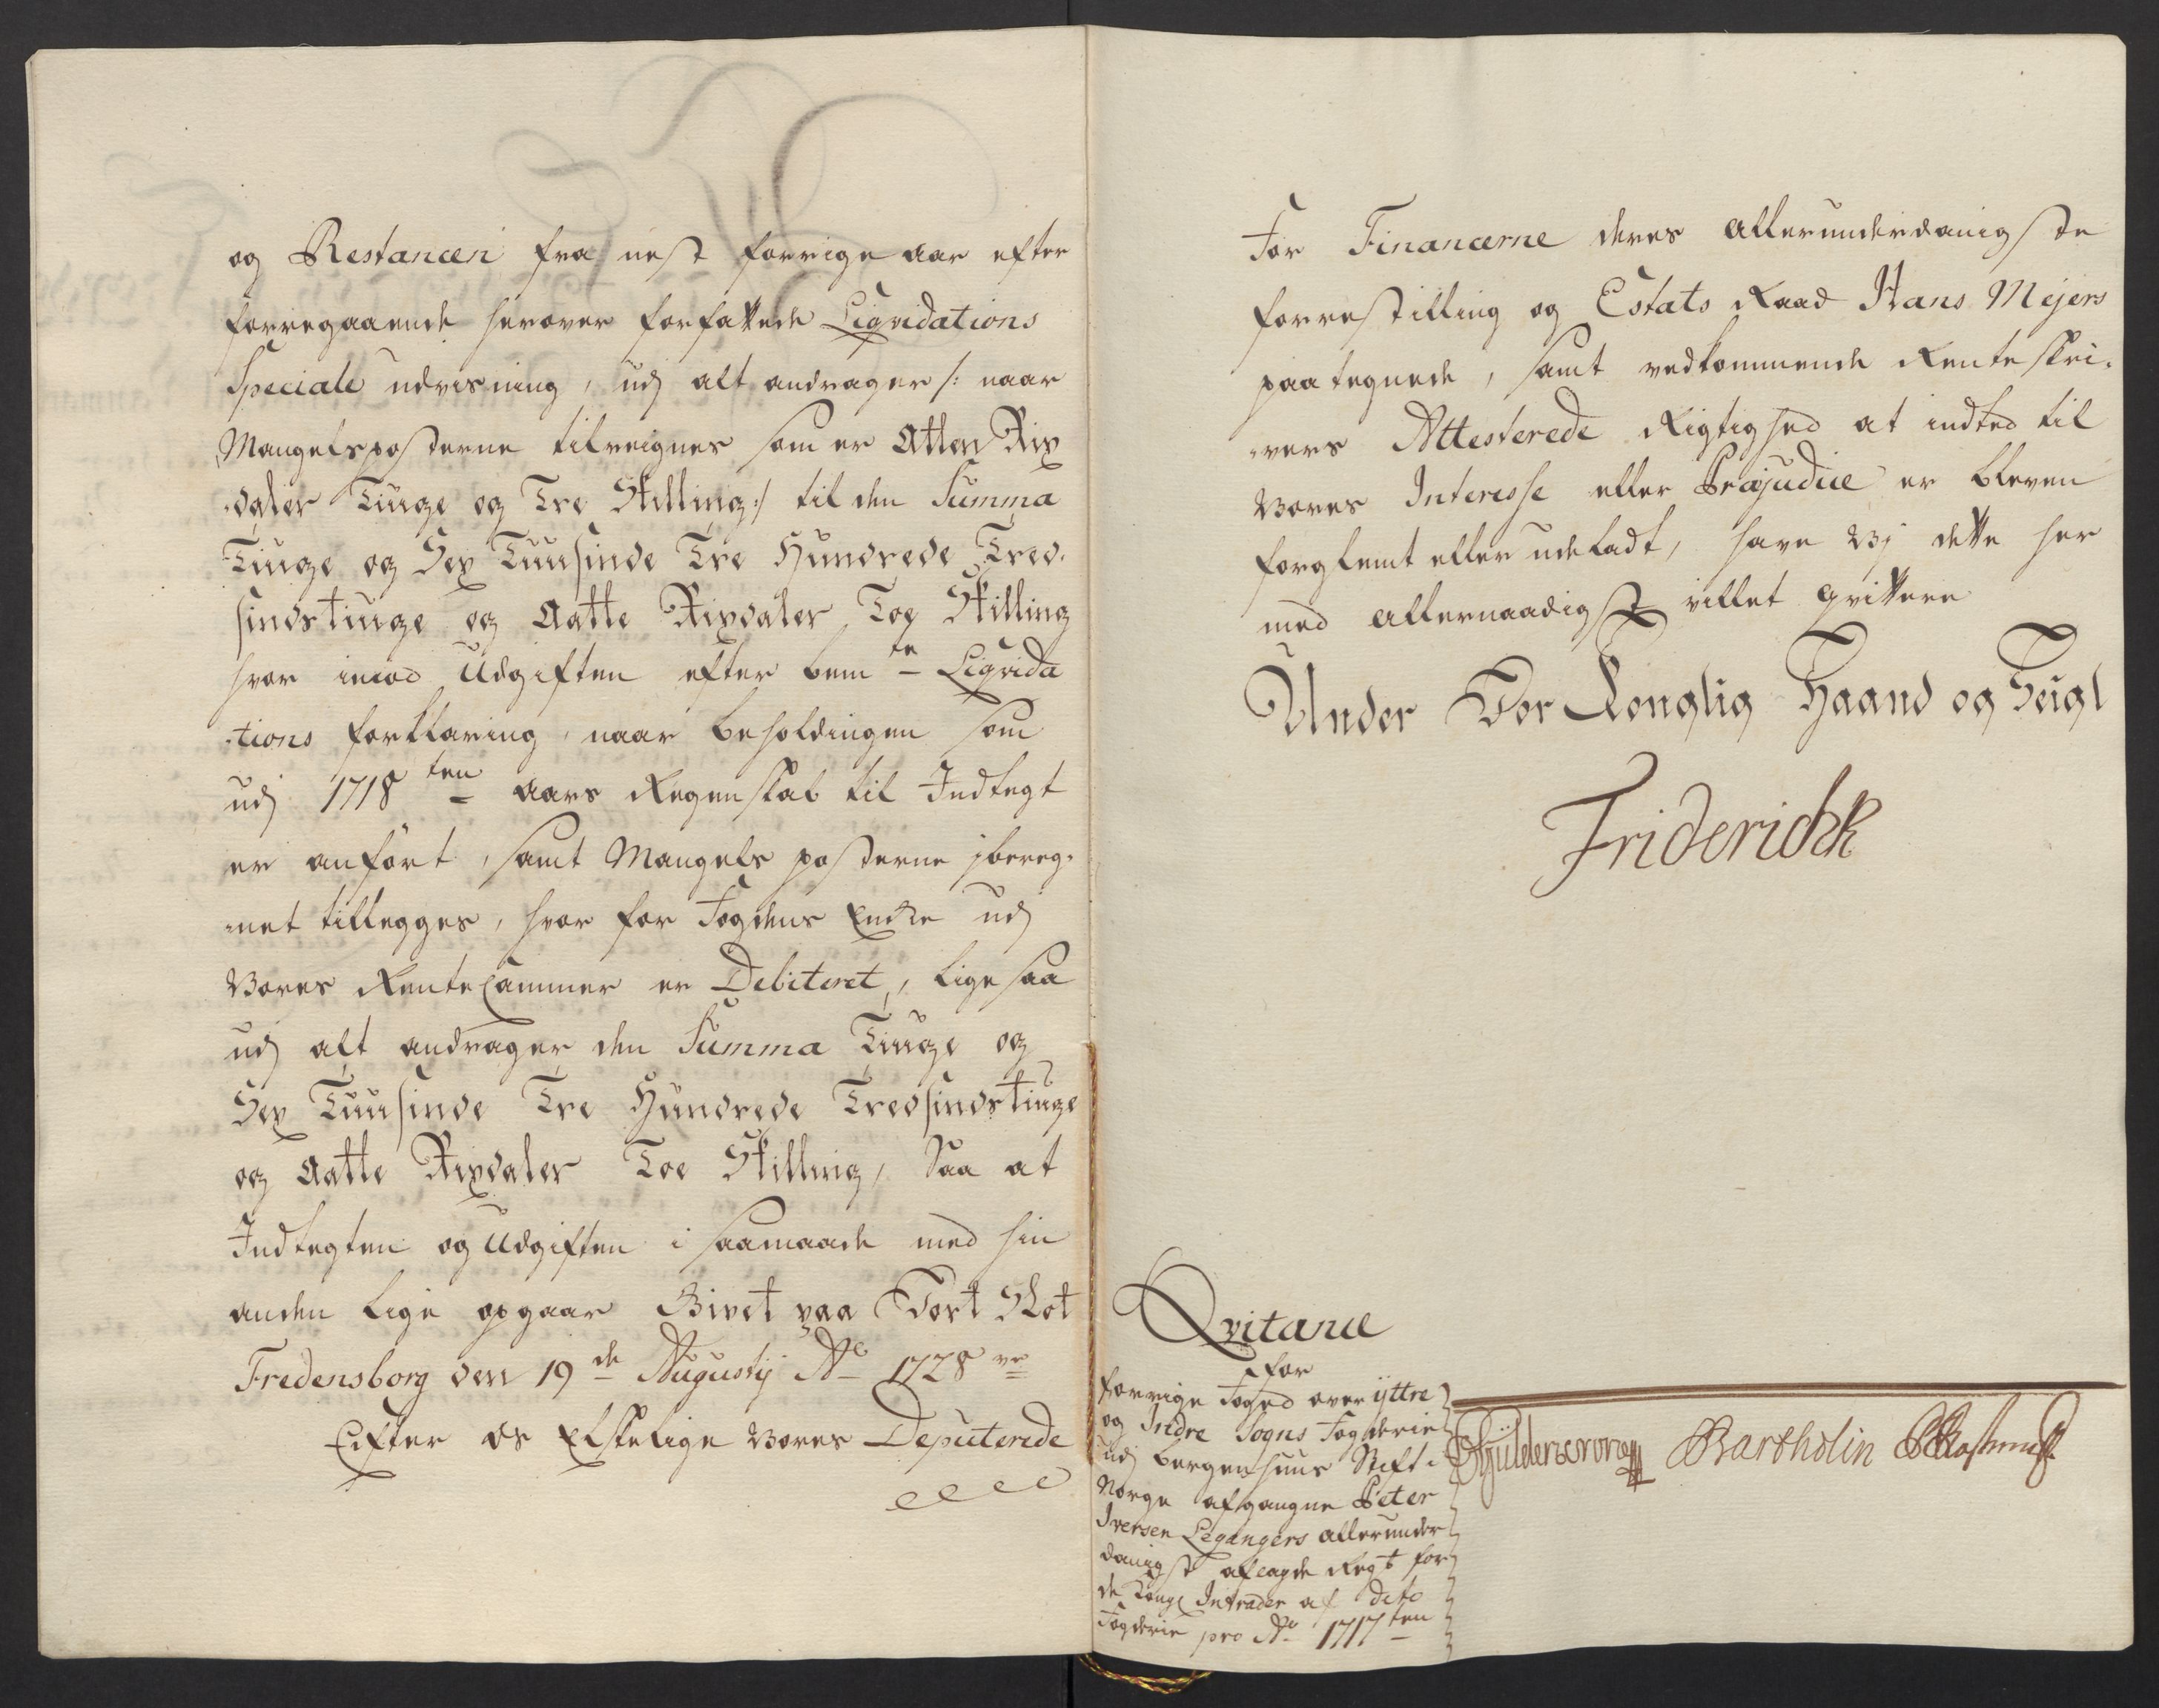 og Restancen fra nest forrige aar efter
forregaaende herover forfattede Liqvidations
Speciale udvisning, udj alt andrager /: naar
Mangelsposterne tilreignes som er Atten Rix
-daler Tiuge og Tre Skilling :/ til den Summa
Tiuge og Sex Tuusinde Tre Hundrede Tred-
sindstiuge og Aatte Rixdaler Toe Skilling
hvor imod Udgiften efter bemte Liqvida
-tions forklaring, naar beholdingen som
udj 1718ten aars Regenskab til Indtegt
er anført, samt Mangels posterne jbereg-
-net tillegges, hvor for Fogdens Enche udj
Vores RenteCammer er Debiteret, lige saa
udj alt andrager den Summa Tiuge og
Sex Tuusinde Tre Hundrede Tredsindstiuge
og Aatte Rixdaler Toe Skilling, Saa at
Indtegten og Udgiften i saamaade med hin
anden lige opgaar Givet paa Vort Slot
Fredensborg den 19de Augustij Ao 1728ve
Eifter os Elskelige Vores Deputerede
For Financerne deres allerunderdanigste
forrestilling og Estats Raad Hans Mejers
paategnede, samt vedkommende Renteskri-
-vers Attesterede Rigtighed at indted til
Vores Interesse eller Præjudice er bleven
forglemt eller udeladt, have Vj dette her
med allernaadigst villet qvittere
Under Vor Konglig Haand og Seigl
Friderich R
Qvitance
for
forrige Foged over ÿttre
og Indre Sogns Fogderie
udj Bergenhuus Stift i
Norge afgangne Peter
Iversen Legangers allerunder
danigst aflagde Regt for
de Kongl Intrader af dito
Fogderie pro Ao 1717ten
Güldencrone Bartholin